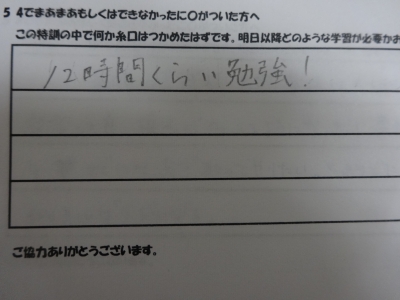 5 4でまあまあもしくはできなかったに〇がついた方へ
この特訓の中で何か糸口はつかめたはずです。明日以降どのような学習が必要かお
12時間くらい勉強!
ご協力ありがとうございます。